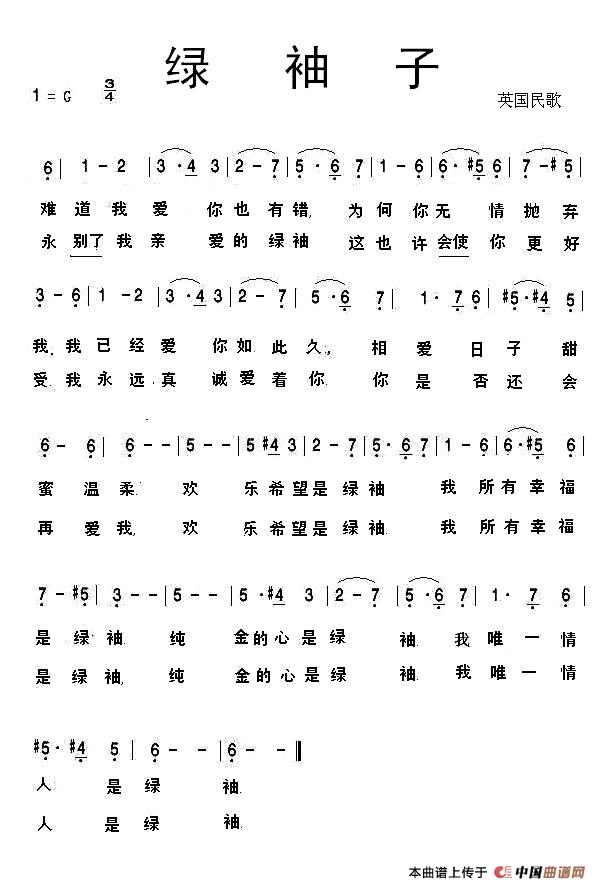 绿 袖 子
1 = G 3/4
英国民歌
6 | 1 - 2 | 3 · 4 3 | 2 - 7 | 5 · 6 | 1 - 6 | 6 · #5 6 | 7 - #5 |
难 道 我 爱 你 也 有 错, 为 何 你 无 情 抛 弃
永 别了 我 亲 爱 的 绿 袖 这 也 许 会使 你 更 好
3 - 6 | 1 - 2 | 3 · 4 3 | 2 - 7 | 5 · 6 7 | 1 · 7 6 | #5 · #4 5 |
我, 我 已 经 爱 你 如 此 久, 相 爱 日 子 甜
受. 我 永 远 真 诚 爱 着 你. 你 是 否 还 会
6 - 6 | 6 - - | 5 - - | 5 #4 3 | 2 - 7 | 5 · 6 7 | 1 - 6 | 6 · #5 6 |
蜜 温 柔. 欢 乐 希 望 是 绿 袖 我 所 有 幸 福
再 爱 我. 欢 乐 希 望 是 绿 袖. 我 所 有 幸 福
7 - #5 | 3 - - | 5 - - | 5 · #4 3 | 2 - 7 | 5 · 6 7 | 1 · 7 6 |
是 绿 袖. 纯 金 的 心 是 绿 袖. 我 唯 一 情
是 绿 袖, 纯 金 的 心 是 绿 袖. 我 唯 一 情
#5 · #4 5 | 6 - - | 6 - ‖
人 是 绿 袖.
人 是 绿 袖.
本曲谱上传于 中国曲谱网